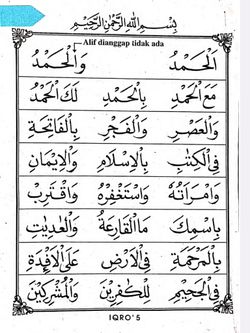 بِسْمِ اللهِ الرَّحْمٰنِ الرَّحِيْمِ
Alif dianggap tidak ada
اَلْحَمْدُ وَالْحَمْدُ
مَعَ الْحَمْدِ بِالْحَمْدِ لَكَ الْحَمْدُ
وَالْعَصْرِ وَالْفَجْرِ بِالْفَاتِحَةِ
فِى الْكِتٰبِ بِالْاِسْلَامِ وَالْاِيْمَانِ
وَامْرَاَتُهُ وَاسْتَغْفِرْهُ وَاقْتَرِبْ
بِاسْمِكَ مَا الْقَارِعَةُ وَالْعٰدِيٰتِ
بِالْمَرْحَمَةِ فِى الْاَرْضِ عَلَى الْاَفْئِدَةِ
فِى الْجَحِيْمِ لِلْكٰفِرِيْنَ وَالْمُشْرِكِيْنَ
IQRO' 5